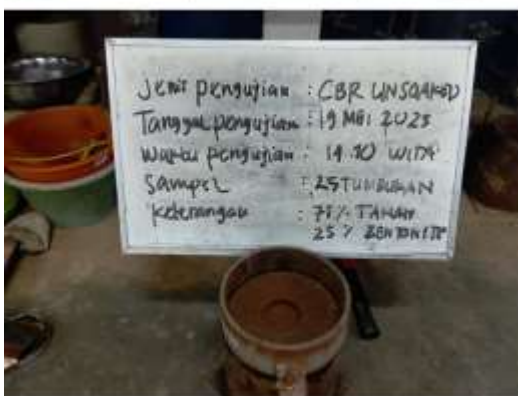 Jenis pengujian : CBR UNSOAKED
Tanggal pengujian : 19 MEI 2023
Waktu pengujian : 14.10 WITA
Sampel : 25 TUMBUKAN
Keterangan : 75% TANAH
25% BENTONITE